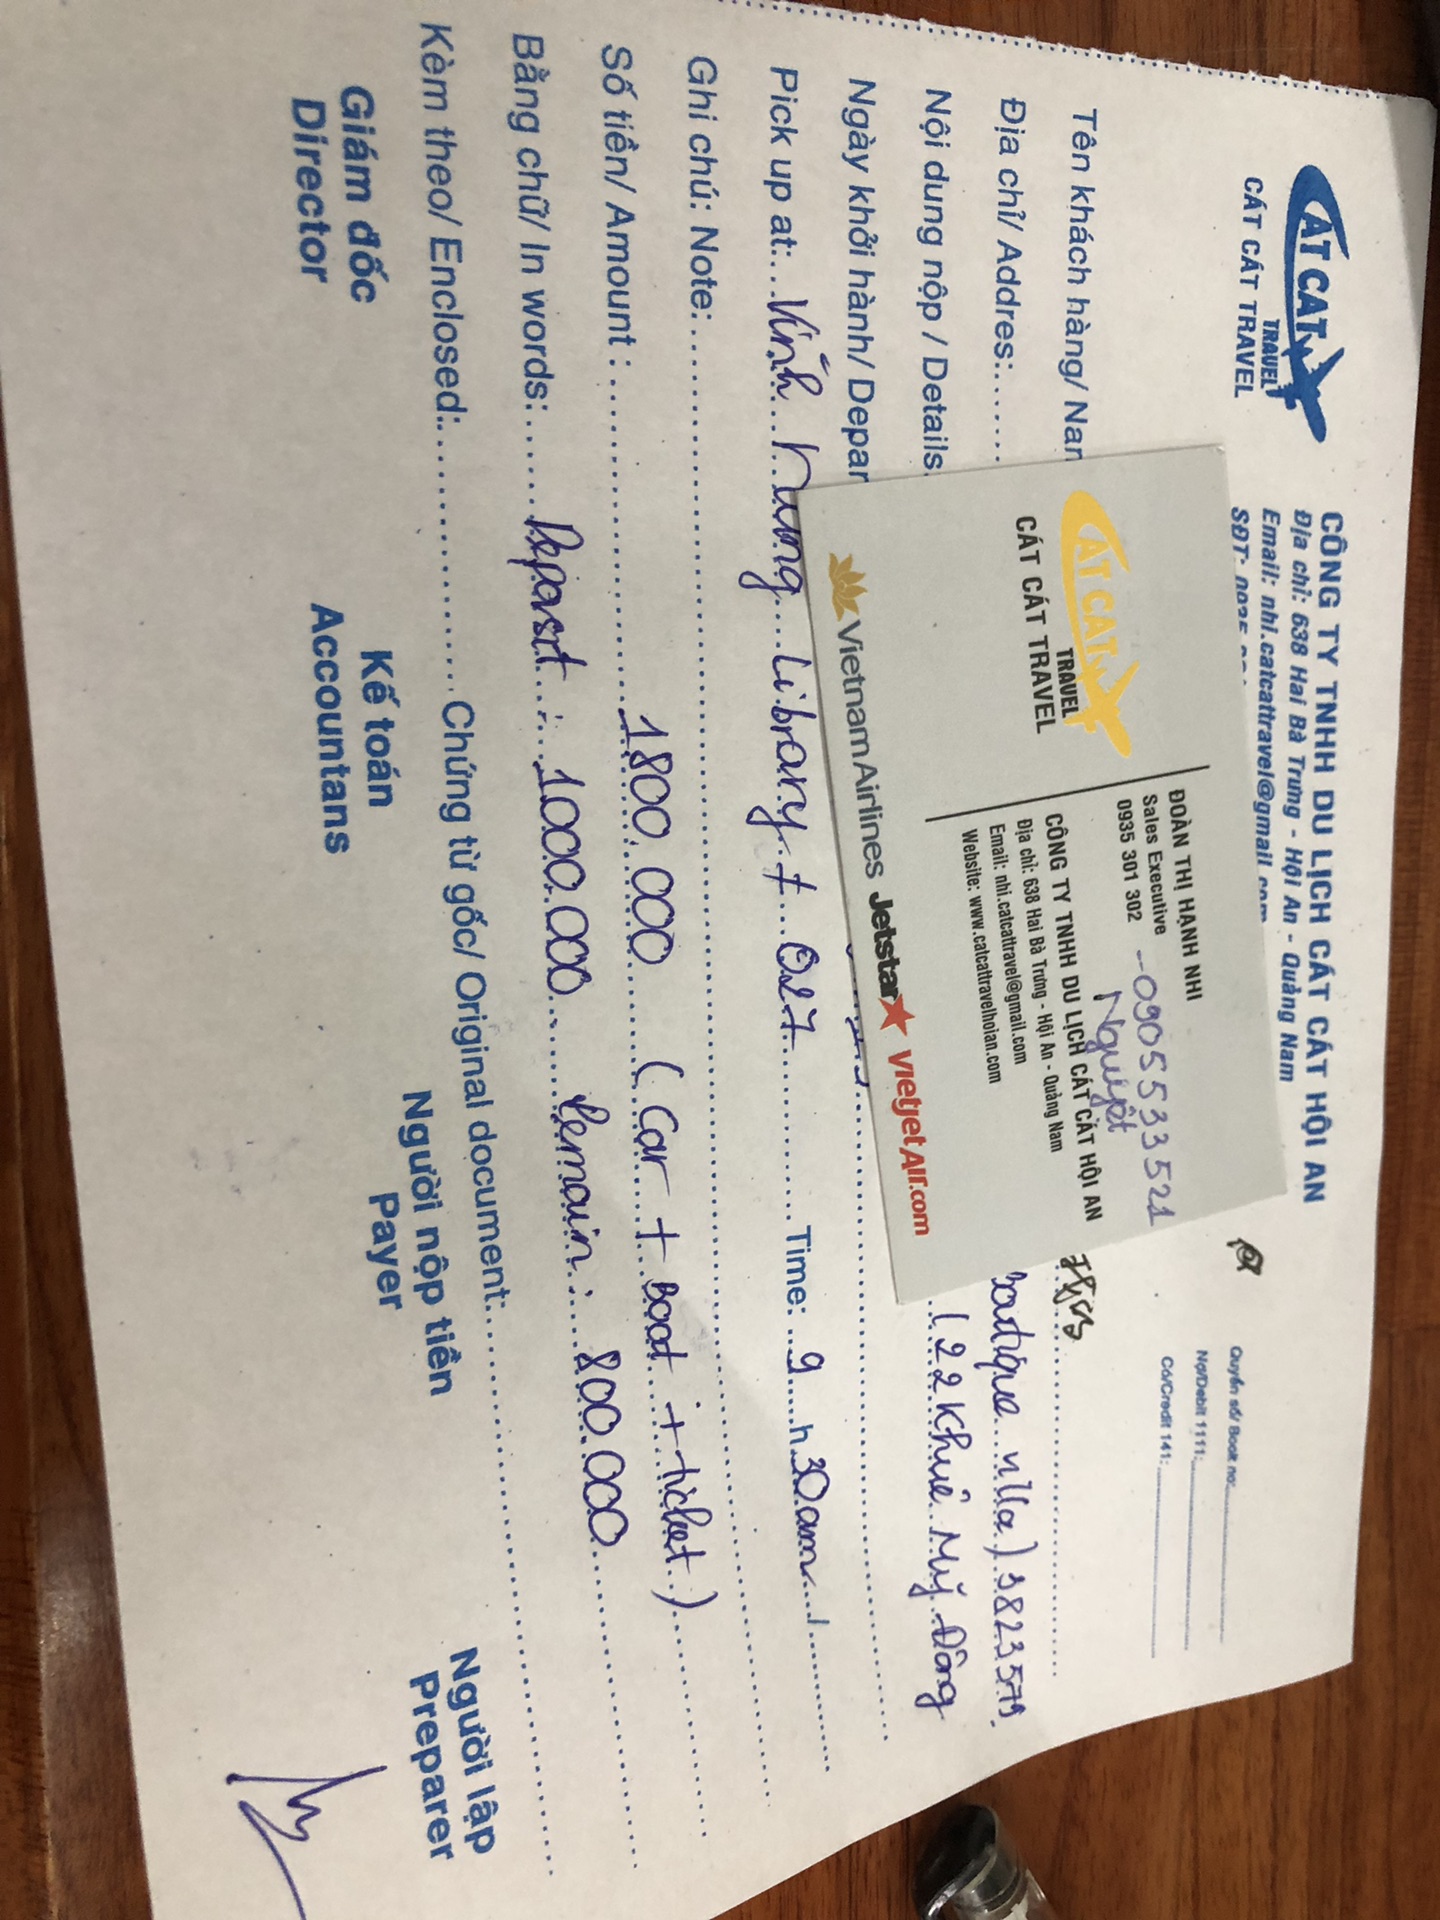 CÁT CÁT TRAVEL
TRAVEL
CÁT CÁT TRAVEL
CÔNG TY TNHH DU LỊCH CÁT CÁT HỘI AN
Địa chỉ: 638 Hai Bà Trưng - Hội An - Quảng Nam
Email: nhi.catcattravel@gmail.com
SĐT: 0935
Quyển số/ Book no:
Nợ/Debit 1111:
Có/Credit 141:
Tên khách hàng/ Nam
Địa chỉ/ Addres: Boutique villa) 3823579.
Nội dung nộp / Details (22 Khuê Mỹ Đông
Ngày khởi hành/ Depar
Pick up at: Vĩnh Hưng Library + 027 Time: 9 h 30am
Ghi chú: Note:
Số tiền/ Amount : 1800.000 (Car + Boat + ticket)
Bằng chữ/ In words: Deposit : 1000.000 Remain : 800.000
Kèm theo/ Enclosed: Chứng từ gốc/ Original document:
Giám đốc Kế toán Người nộp tiền Người lập
Director Accountans Payer Preparer
CÁT CÁT TRAVEL
TRAVEL
CÁT CÁT TRAVEL
ĐOÀN THỊ HẠNH NHI
Sales Executive
0935 301 302 - 0905533521
Nguyệt
CÔNG TY TNHH DU LỊCH CÁT CÁT HỘI AN
Địa chỉ: 638 Hai Bà Trưng - Hội An - Quảng Nam
Email: nhi.catcattravel@gmail.com
Website: www.catcattravelhoian.com
Vietnam Airlines Jetstar vietjetAir.com